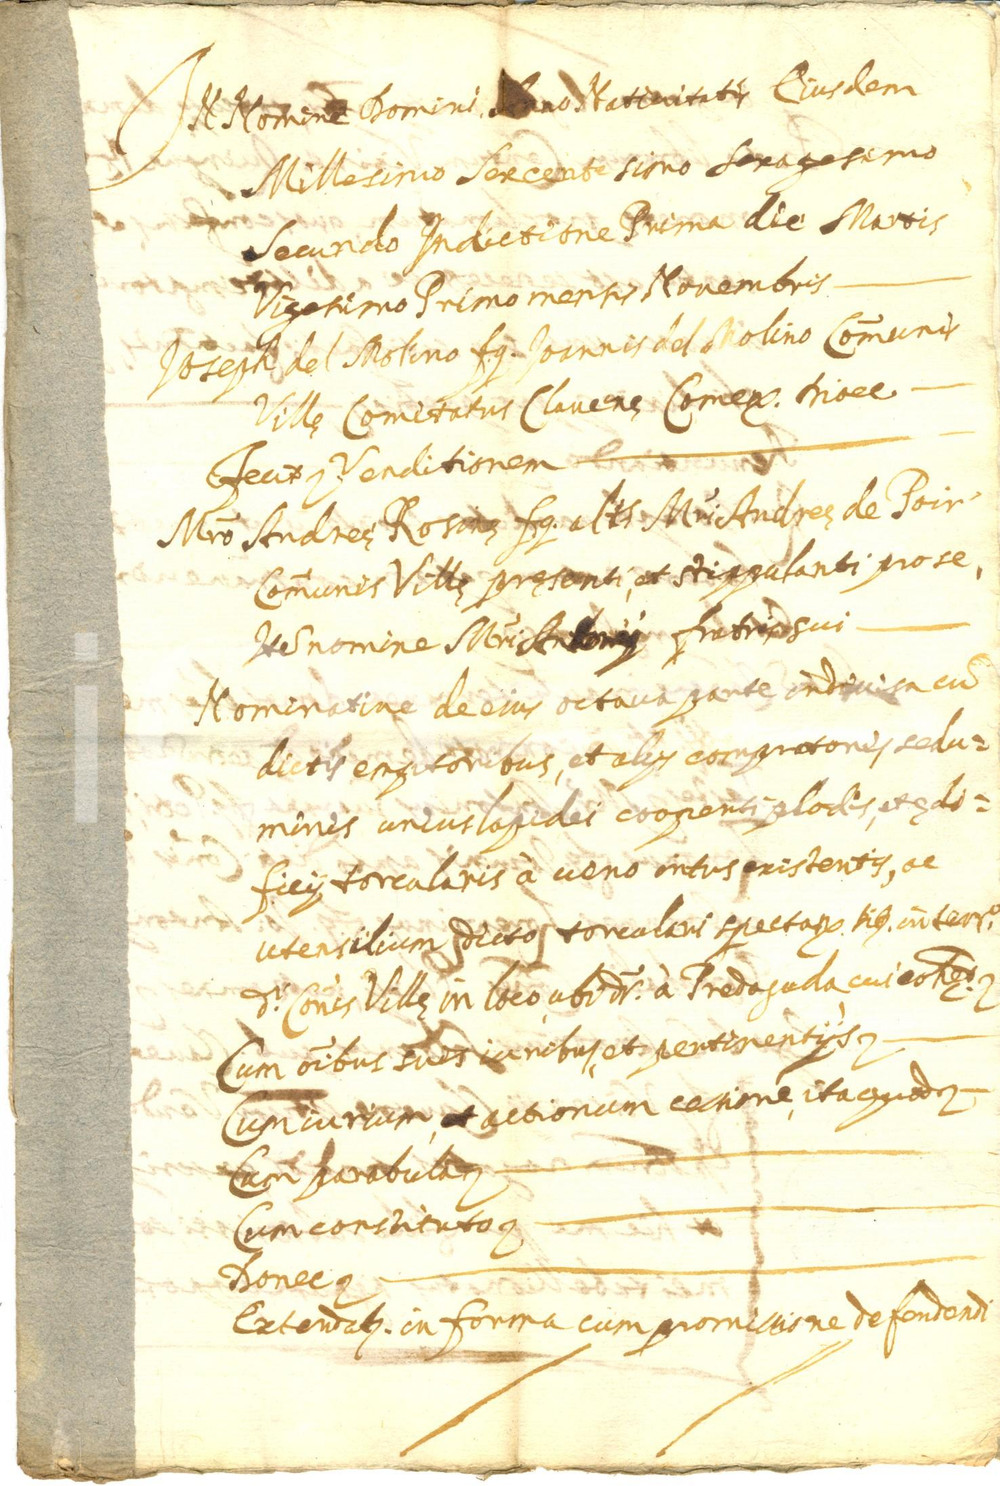 IN Nomine Domini, Anno Natiuitatis Eiusdem
Millesimo Sexcentesimo Sexagesimo
Secundo Indictione Prima die Martis
Vigesimo Primo mensis Nouembris
Joseph del Molino fq. Joannis del Molino Com̄unis
Villę Comitatus Clauenę Comen.
Fecit Venditionem
Mr̄o Andreę fq. alts Mr̄i Andreę de Poir
Com̄unis Villę pręsenti, et stippulanti pro se,
nomine Mr̄i Antonij fratris sui
Nominatiue de eius octaua parte indiuisa cū
dictis emptoribus, et alijs compratorijs sedu=
minis unius lapidei cooperti plodis, et ędi=
ficij torcularis à ueno intus existentis, ac
utensilium dicto torculari spectan. in terr.o
d.i Com̄is Villę in loco, ubi dr. à Predaguda cui cohęt.
Cum om̄ibus suis iuribus, et pertinentijs
Cum iurium, et actionum cessione, ita quod
Cum parabula
Cum constituto
Donec
Extendat. in forma cum promissione defendendi